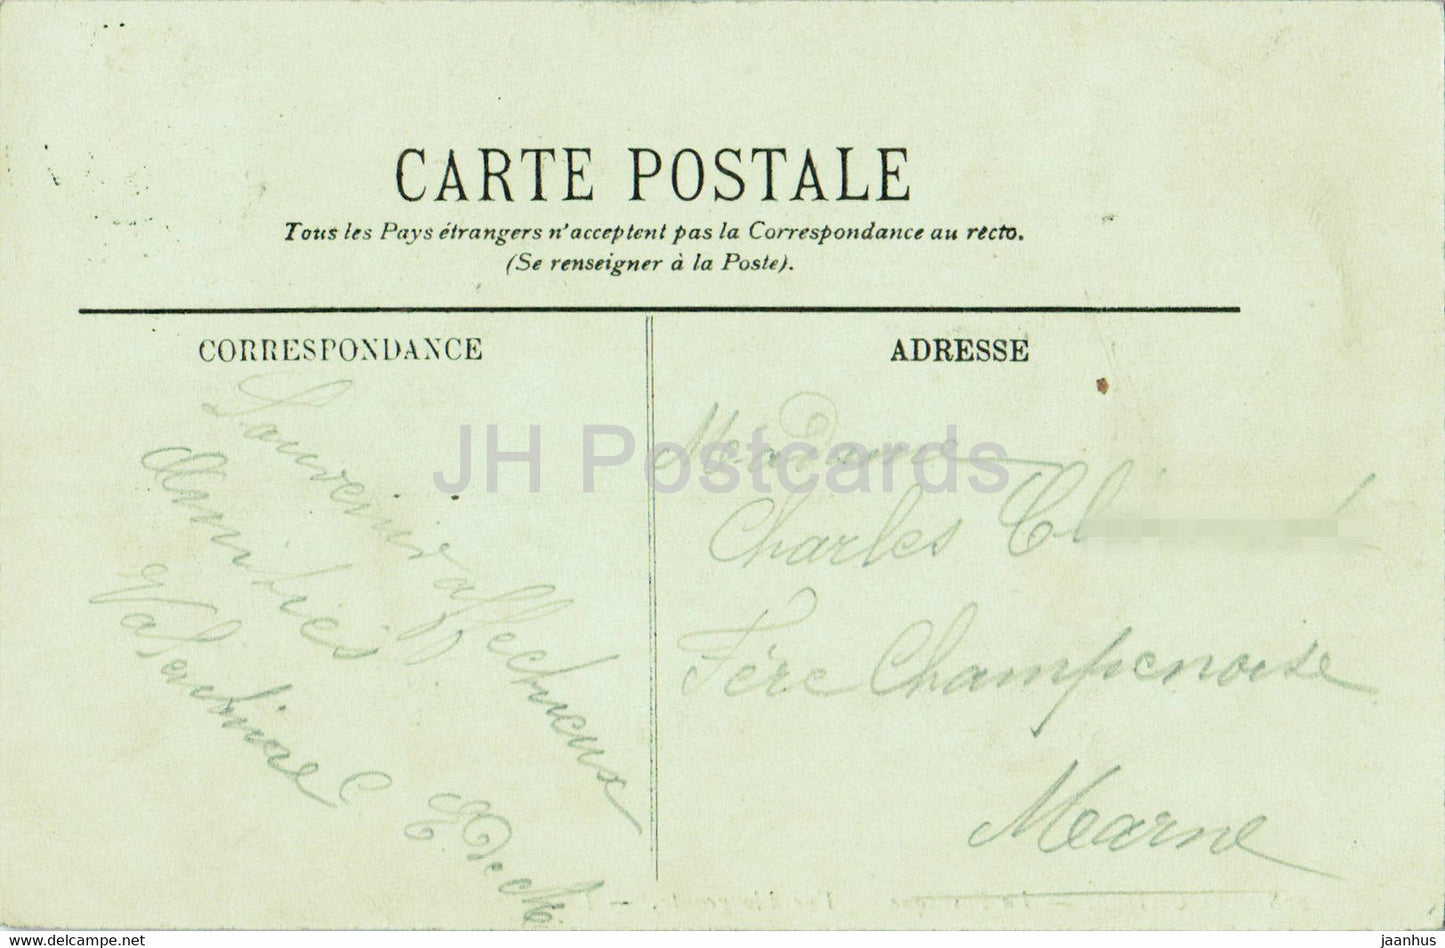 CARTE POSTALE
Tous les Pays étrangers n'acceptent pas la Correspondance au recto.
(Se renseigner à la Poste).
CORRESPONDANCE
Souvenirs affectueux
Amitiés
Valentine C
ADRESSE
Madame
Charles
Fère Champenoise
Marne
JH Postcards
hip-postcard.com
jaanhus